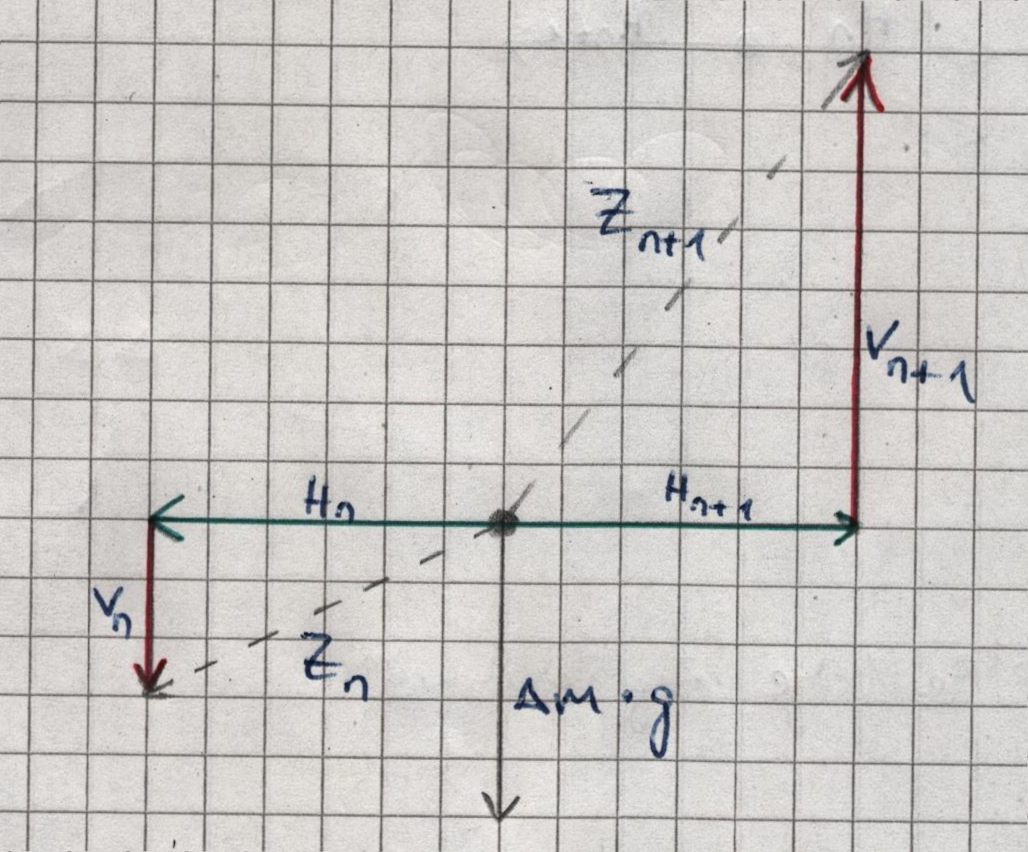 Z_{n+1}
V_{n+1}
H_n
H_{n+1}
V_n
Z_n
Δm·g